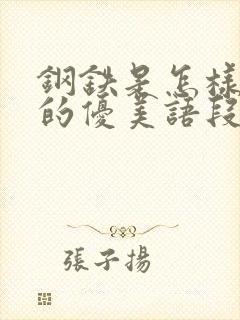 鋼鉄是怎樣
的優美語段
張子揚